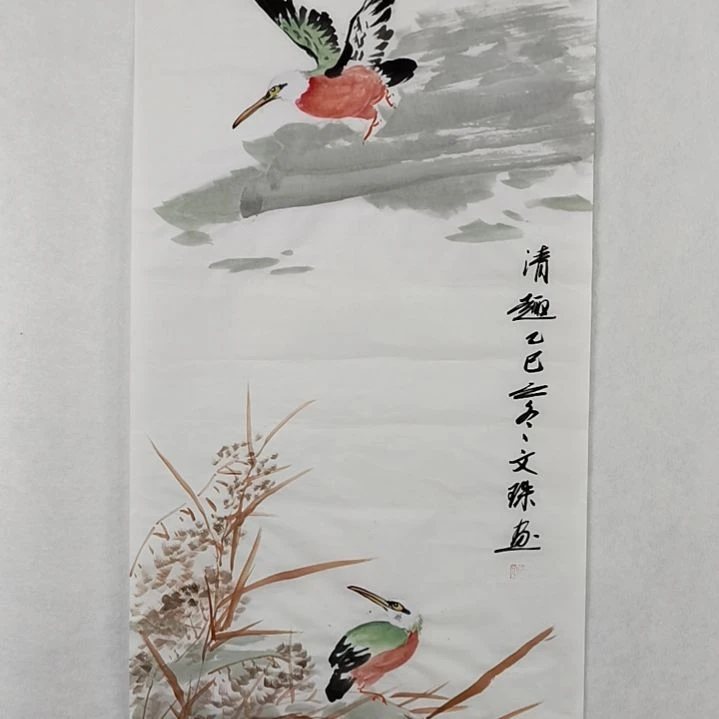 清趣乙巳之冬文珠画